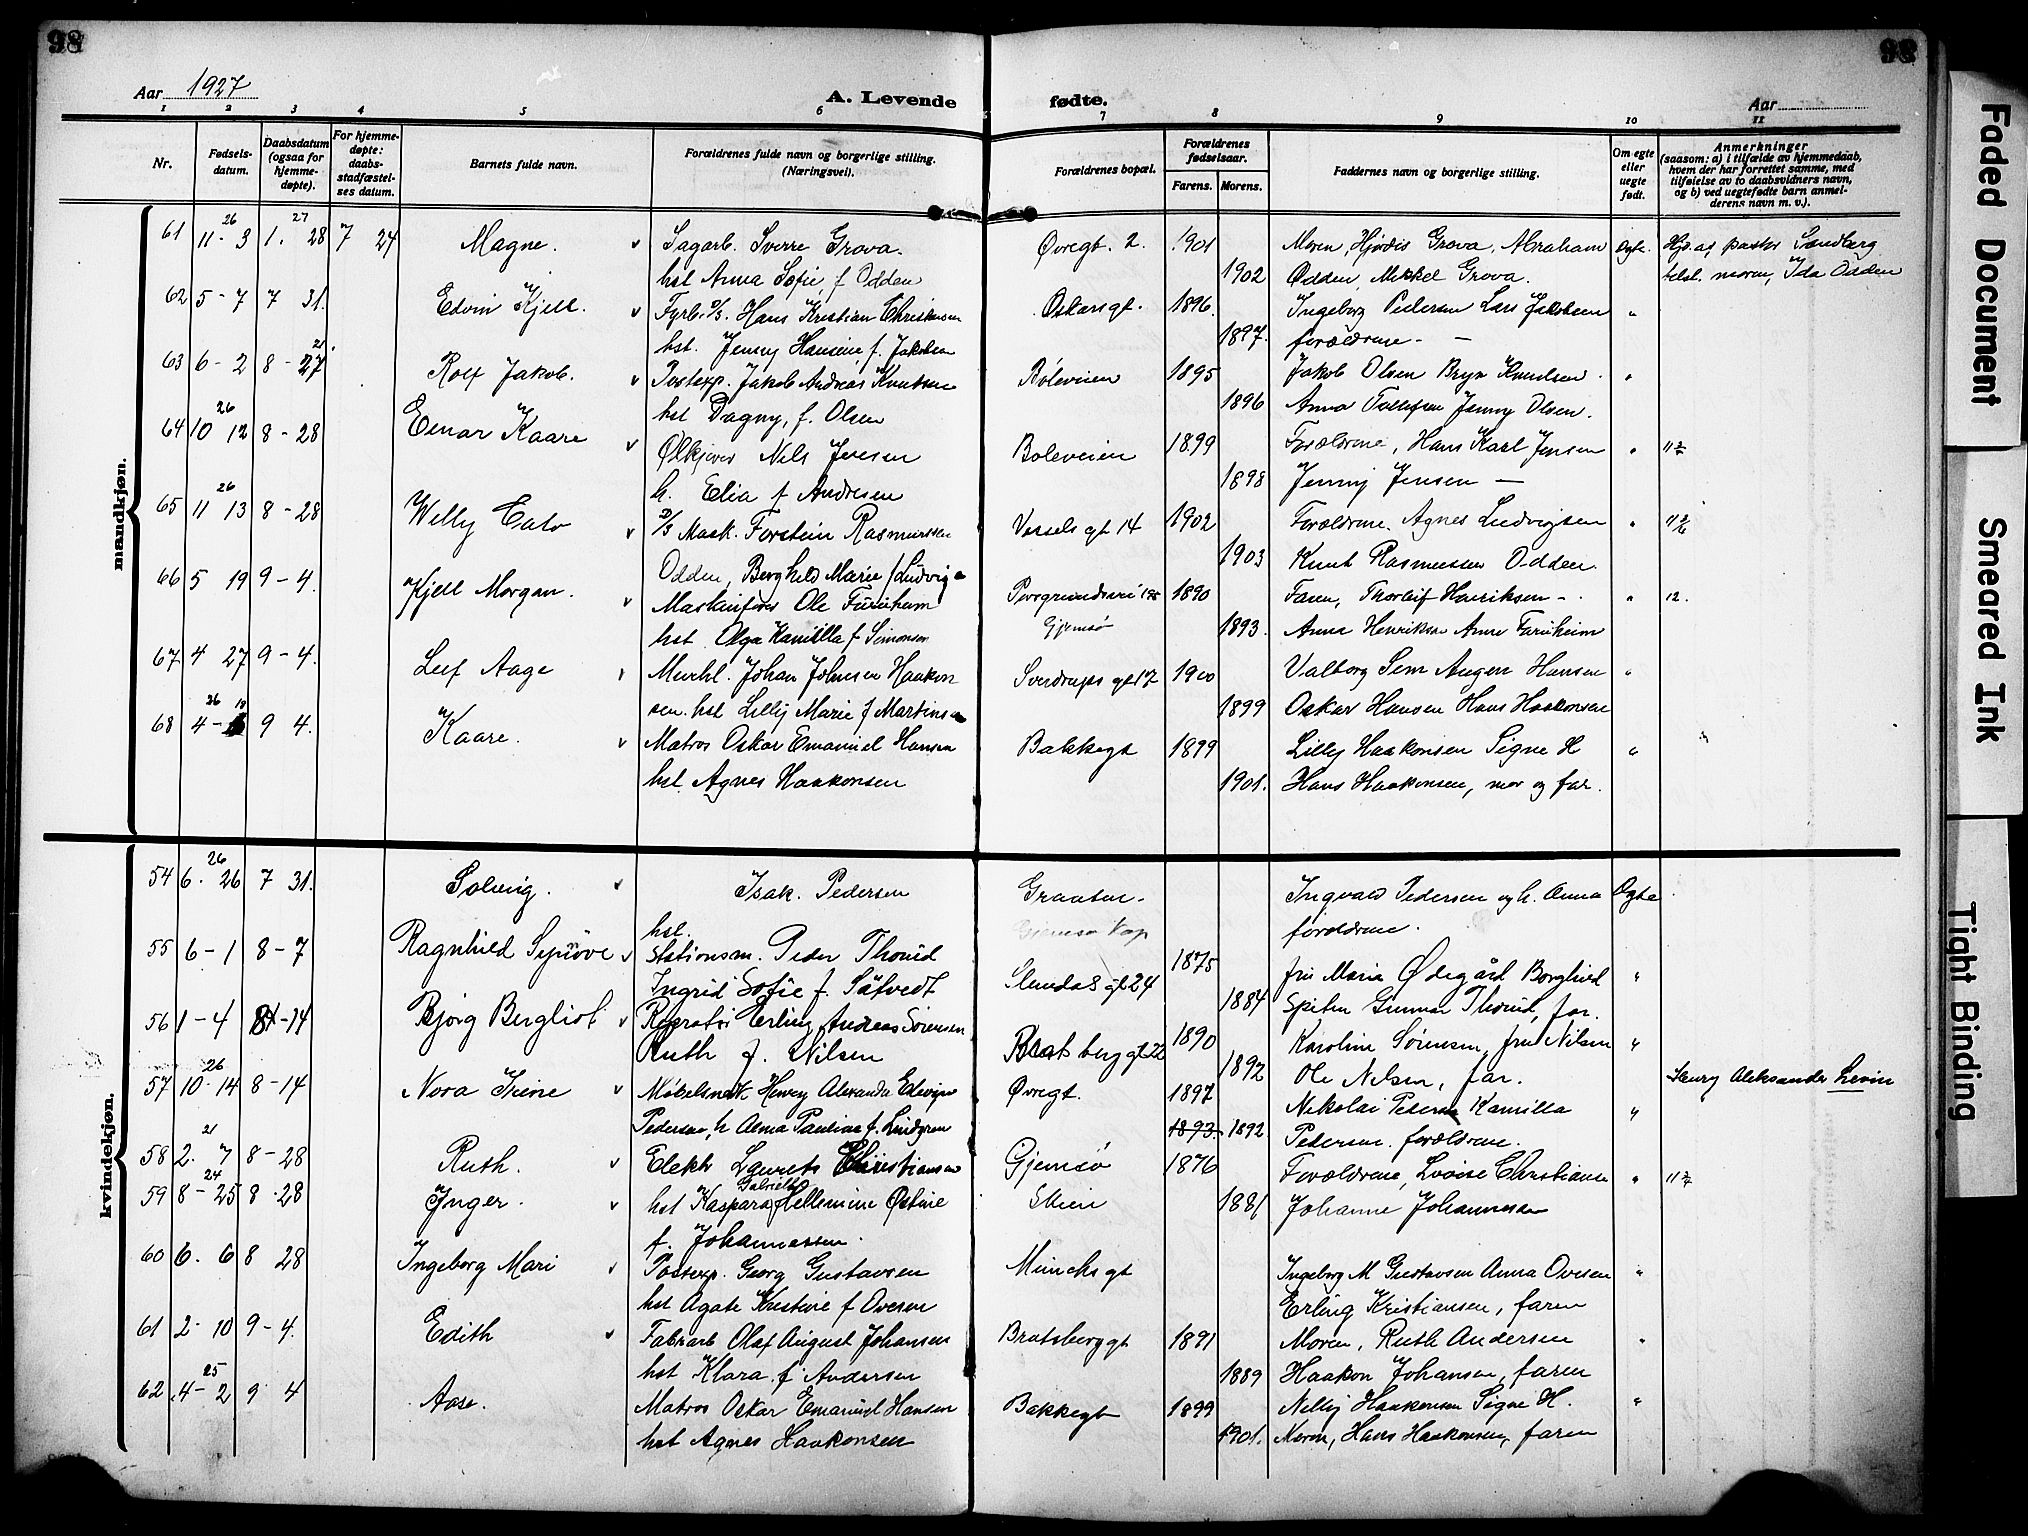 98
98
Aar 1927
A. Levende fødte.
Aar
1 2 3 4 5 6 7 8 9 10 11
Nr.
Fødsels-
datum.
Daabsdatum
(ogsaa for
hjemme-
døpte).
For hjemme-
døpte:
daabs-
stadfæstel-
ses datum.
Barnets fulde navn.
Forældrenes fulde navn og borgerlige stilling.
(Næringsvei).
Forældrenes bopæl.
Forældrenes
fødselsaar.
Farens. Morens.
Faddernes navn og borgerlige stilling.
Om egte
eller
uegte
født.
Anmerkninger
(saasom: a) i tilfælde av hjemmedaab,
hvem der har forrettet samme, med
tilføielse av to daabsvidners navn,
og b) ved uegtefødte barn anmel-
derens navn m. v.).
mandkjøn.
61 11-3 26 1. 28 27 7 24 Magne. v Sagarb. Sverre Grova. Øvregt. 2. 1901 Moren, Hjørdis Grova, Abraham Egte. Hjd. af pastor Sandberg
hst Anna Sofie, f Odden 1902 Odden, Mikkel Grova. test. moren, Ida Odden
62 5-7 7 31. Edvin Kjell. v Fyrb. D/S. Hans Kristian Christensen Oskarsgt. 1896. Ingeborg Pedersen Lars Jakobsen "
hst. Jenny Hansine, f. Jakobsen 1897. forældrene. —
63 6-2 8-27 21. Rolf Jakob. v Postexp. Jakob Andreas Knutsen Bøleveien 1895 Jakob Olsen Bryn Knudsen. "
hst Dagny, f. Olsen 1896 Anna Tollefsen Jenny Olsen.
64 10 12 26 8-28 Einar Kaare v Ølkjører Nils Jensen Boleveien 1899 Forældrene, Hans Karl Jensen "
h. Elia f Andresen 1898 Jenny Jensen —
65 11 13 26 8-28 Willy Cato v D/S Mask. Torstein Rasmussen Vessels gt 14 1902 Forældrene. Agnes Ludvigsen "
Odden, Berghild Marie f Ludvig 1903 Knut Rasmussen Odden.
66 5 19 9-4. Kjell Morgan. v Maskinfører Ole Furuheim Porsgrundsvei 1890 Faren, Thorleif Henriksen - . " 12.
hst. Olga Kamilla f Simonsen Gjemsø 1893. Anna Henriksen Anne Furuheim
67 4 27 9-4. Leif Aage v Murhl. Johan Johnsen Haakon Sverdrups gt 17 1900 Valborg Sem Aagen Hansen "
sen. hst Lilly Marie f Martinsen 1899 Oskar Hansen Hans Haakonsen
68 4- 26 18 9 4. Kaare. v Matros Oskar Emanuel Hansen Bakkegt 1899 Lilly Haakonsen Signe H "
hst. Agnes Haakonsen 1901. Hans Haakonsen, mor og far.
kvindekjøn.
54 6. 26 26 7 31. Solveig. v Isak. Pedersen Graaten. Ingvald Pedersen og h. Anna Egte
hst. Gjemsø Kap forældrene.
55 6-1 8-7 Ragnhild Synøve v Stationsm. Peder Thorud 1875 fru Maria Ødegård Borghild "
Ingrid Sofie f. Såtvedt Slemdals gt 24 1884 Spiten Gunnar Thorud, far.
56 1-4 8-14 Bjørg Bergliot v Reprator Erling Andreas Sørensen 1890 Karoline Sørensen, fru Nilsen "
Ruth f. Nilsen Bratsberggt 22 1892 Ole Nilsen, far.
57 10-14 26 8-14 Nora Irene v Møbelsnek. Henry Alexander Edevin Øvregt. 1897 Nikolai Petersen Kamilla " Henry Aleksander Levin
Pedersen, h Alma Pauline f. Lindgren 1893. 1892 Pedersen. forældrene.
58 2. 7 21 8-28 Ruth. v Elektr Laurits Christiansen Gjemsø 1876 Forældrene, Lovise Christiansen "
59 8-25 24 8. 28 Inger. v hst Kaspara Gabrielle Hellemine Østine Skien 1881 Johanne Johannesen
f. Johannessen.
60 6. 6 8 28 Ingeborg Mari v Postexp. Georg Gustavsen Muncksgt Ingeborg M Gustavsen Anna Ovesen "
hst Agate Kristine f Ovesen Erling Kristiansen, faren
61 2-10 9-4. Edith v Fabrarb Olaf August Johansen Bratsberggt 1891 Moren, Ruth Andersen "
hst Klara f. Andersen 1889 Haakon Johansen, faren
62 4-2 25 9 4 Aase. Matros Oskar Emanuel Hansen Bakkegt 1899 Nelly Haakonsen Signe H. "
hst Agnes Haakonsen 1901. Moren, Hans Haakonsen, faren
Faded Document
Smeared Ink
Tight Binding